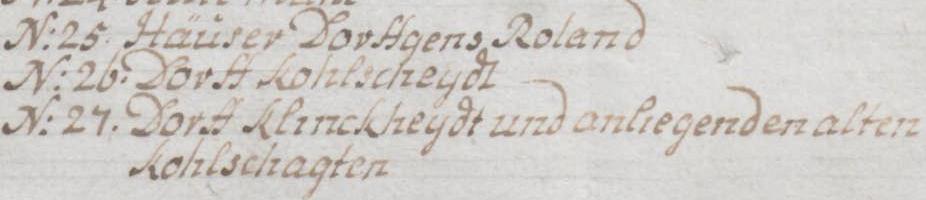 N: 25. Häuser Dorffgens Roland
N: 26: Dorff Kohlscheydt
N: 27. Dorff Klinckheydt und anliegenden alten
Kohlschagten